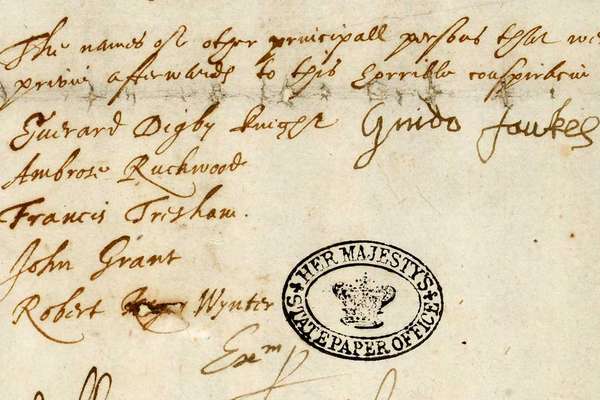 The names of other principall persons that we
privie afterwards to this horrible conspiracie
Everard Digby knight Guido Faukes
Ambrose Ruckwood
Francis Tresham.
John Grant
Robert Wynter
Exm p
HER MAJESTY'S
STATE PAPER OFFICE